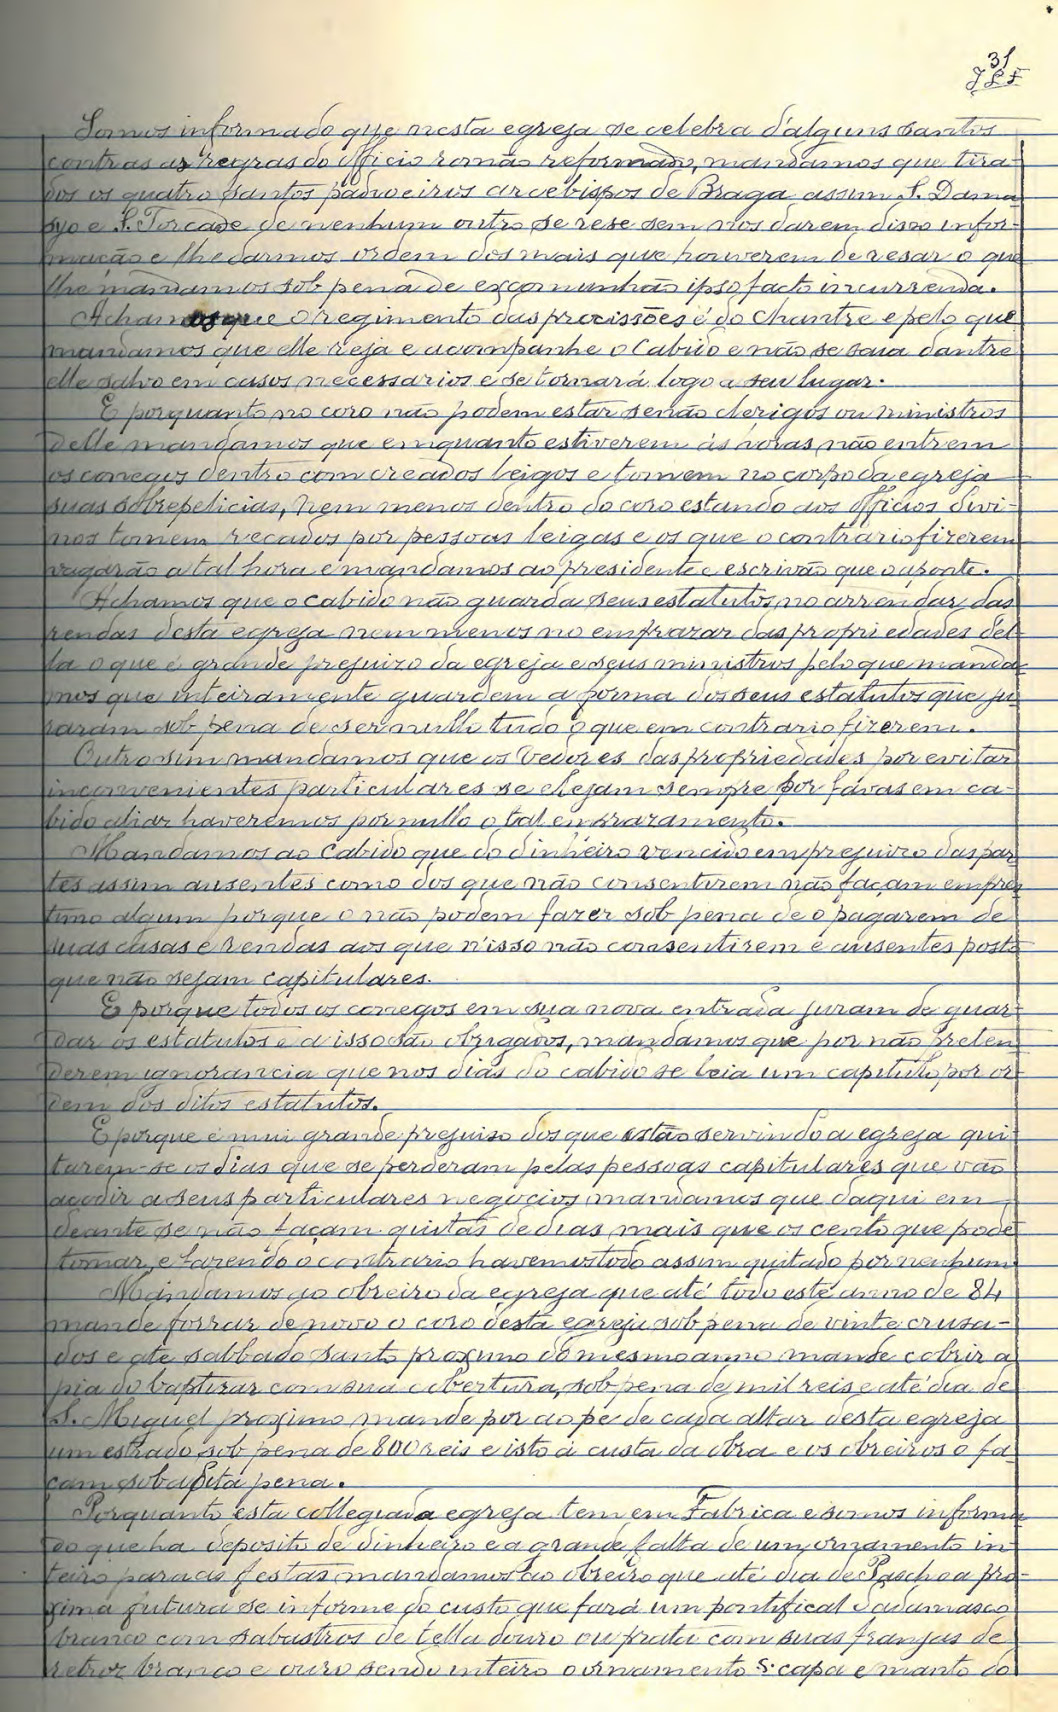 31
J L F
Somos informado que nesta egreja se celebra d'alguns santos
contras as regras do officio romão reformado, mandamos que tira-
dos os quatro santos padroeiros arcebispos de Braga assim S. Dama-
syo e S. Torcade de nenhum outro se rese sem nos darem disso infor-
mação e lhe darmos ordem dos mais que houverem de resar o que
lhe mandamos sob pena de excomunhão ipso facto incurrenda.
Achamos que o regimento das procissões é do chantre e pelo que
mandamos que elle reja e acompanhe o Cabido e não se saia dantre
elle salvo em casos necessarios e se tornará logo a seu lugar.
E porquanto no coro não podem estar senão clerigos ou ministros
delle mandamos que emquanto estiverem ás horas não entrem
os conegos dentro com creados leigos e tomem no corpo da egreja
suas sobrepelicias, nem menos dentro do coro estando aos officios divi-
nos tomem recados por pessoas leigas e os que o contrario fizerem
vagarão a tal hora e mandamos ao presidente e escrivão que o aponte.
Achamos que o cabido não guarda seus estatutos no arrendar das
rendas desta egreja nem menos no emprazar das propriedades del-
la o que é grande prejuizo da egreja e seus ministros pelo que manda-
mos que inteiramente guardem a forma dos seus estatutos que ju-
raram sob pena de ser nullo tudo o que em contrario fizerem.
Outro sim mandamos que os vedores das propriedades por evitar
inconvenientes particulares se elejam sempre por fávas em ca-
bido aliar haveremos por nullo o tal emprazamento.
Mandamos ao Cabido que do dinheiro vencido em prejuizo das par-
tes assim ausentes como dos que não consentirem não façam empres-
timo algum porque o não podem fazer sob pena de o pagarem de
suas casas e rendas aos que n'isso não consentirem e ausentes posto
que não sejam capitulares.
E porque todos os conegos em sua nova entrada juram de guar-
dar os estatutos e a isso são obrigados, mandamos que por não preten-
derem ignorancia que nos dias do cabido se leia um capitulo por or-
dem dos ditos estatutos.
E porque é mui grande prejuiso dos que estão servindo a egreja qui-
tarem-se os dias que se perderam pelas pessoas capitulares que vão
acodir a seus particulares negocios mandamos que daqui em
deante se não façam quitas de dias mais que os cento que pode
tomar, e fazendo o contrario havemos todo assim quitado por nenhum
Mandamos ao obreiro da egreja que até todo este anno de 84
mande forrar de novo o coro desta egreja sob pena de vinte crusa-
dos e até sabbado santo proximo do mesmo anno mande cobrir a
pia do baptizar com sua cobertura, sob pena de mil reis e até dia de
S. Miguel proximo mande por ao pé de cada altar desta egreja
um estrado sob pena de 800 reis e isto á custa da obra e os obreiros o fa-
çam sob a dita pena.
Porquanto esta collegiada egreja tem em Fabrica e somos informa-
do que ha deposito de dinheiro e a grande falta de um ornamento in-
teiro para as festas mandamos ao obreiro que até dia de Paschoa pro-
xima futura se informe do custo que fará um pontifical d'adamasco
branco com sabastros de tella douro ou prata com suas franjas de
retroz branco e ouro sendo inteiro o ornamento s. capa e manto do